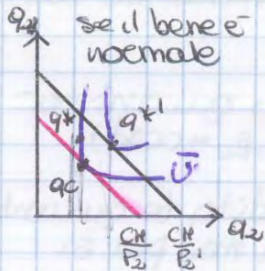 q₂
se il bene è
normale
q*
q*'
qc
Ū
CH
P₂
CH
P₂'
q₂